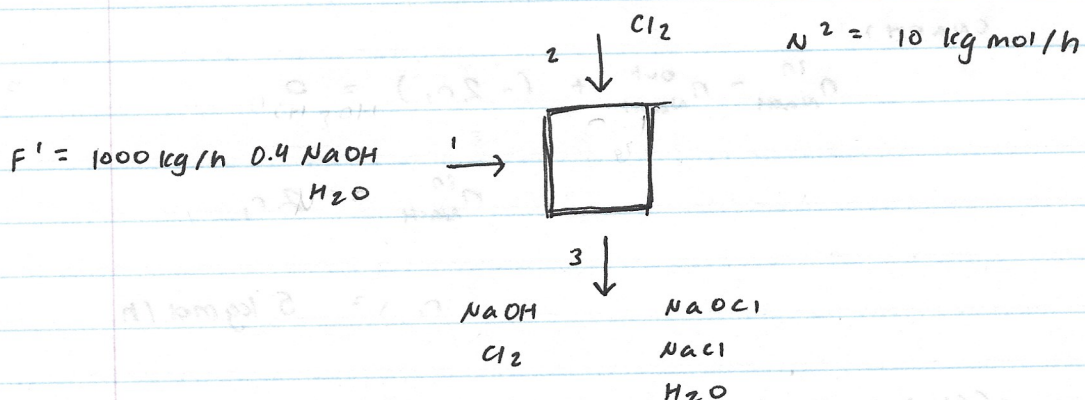 2 Cl2 N² = 10 kg mol/h
F¹ = 1000 kg/h 0.4 NaOH 1
H2O
3
NaOH NaOCl
Cl2 NaCl
H2O